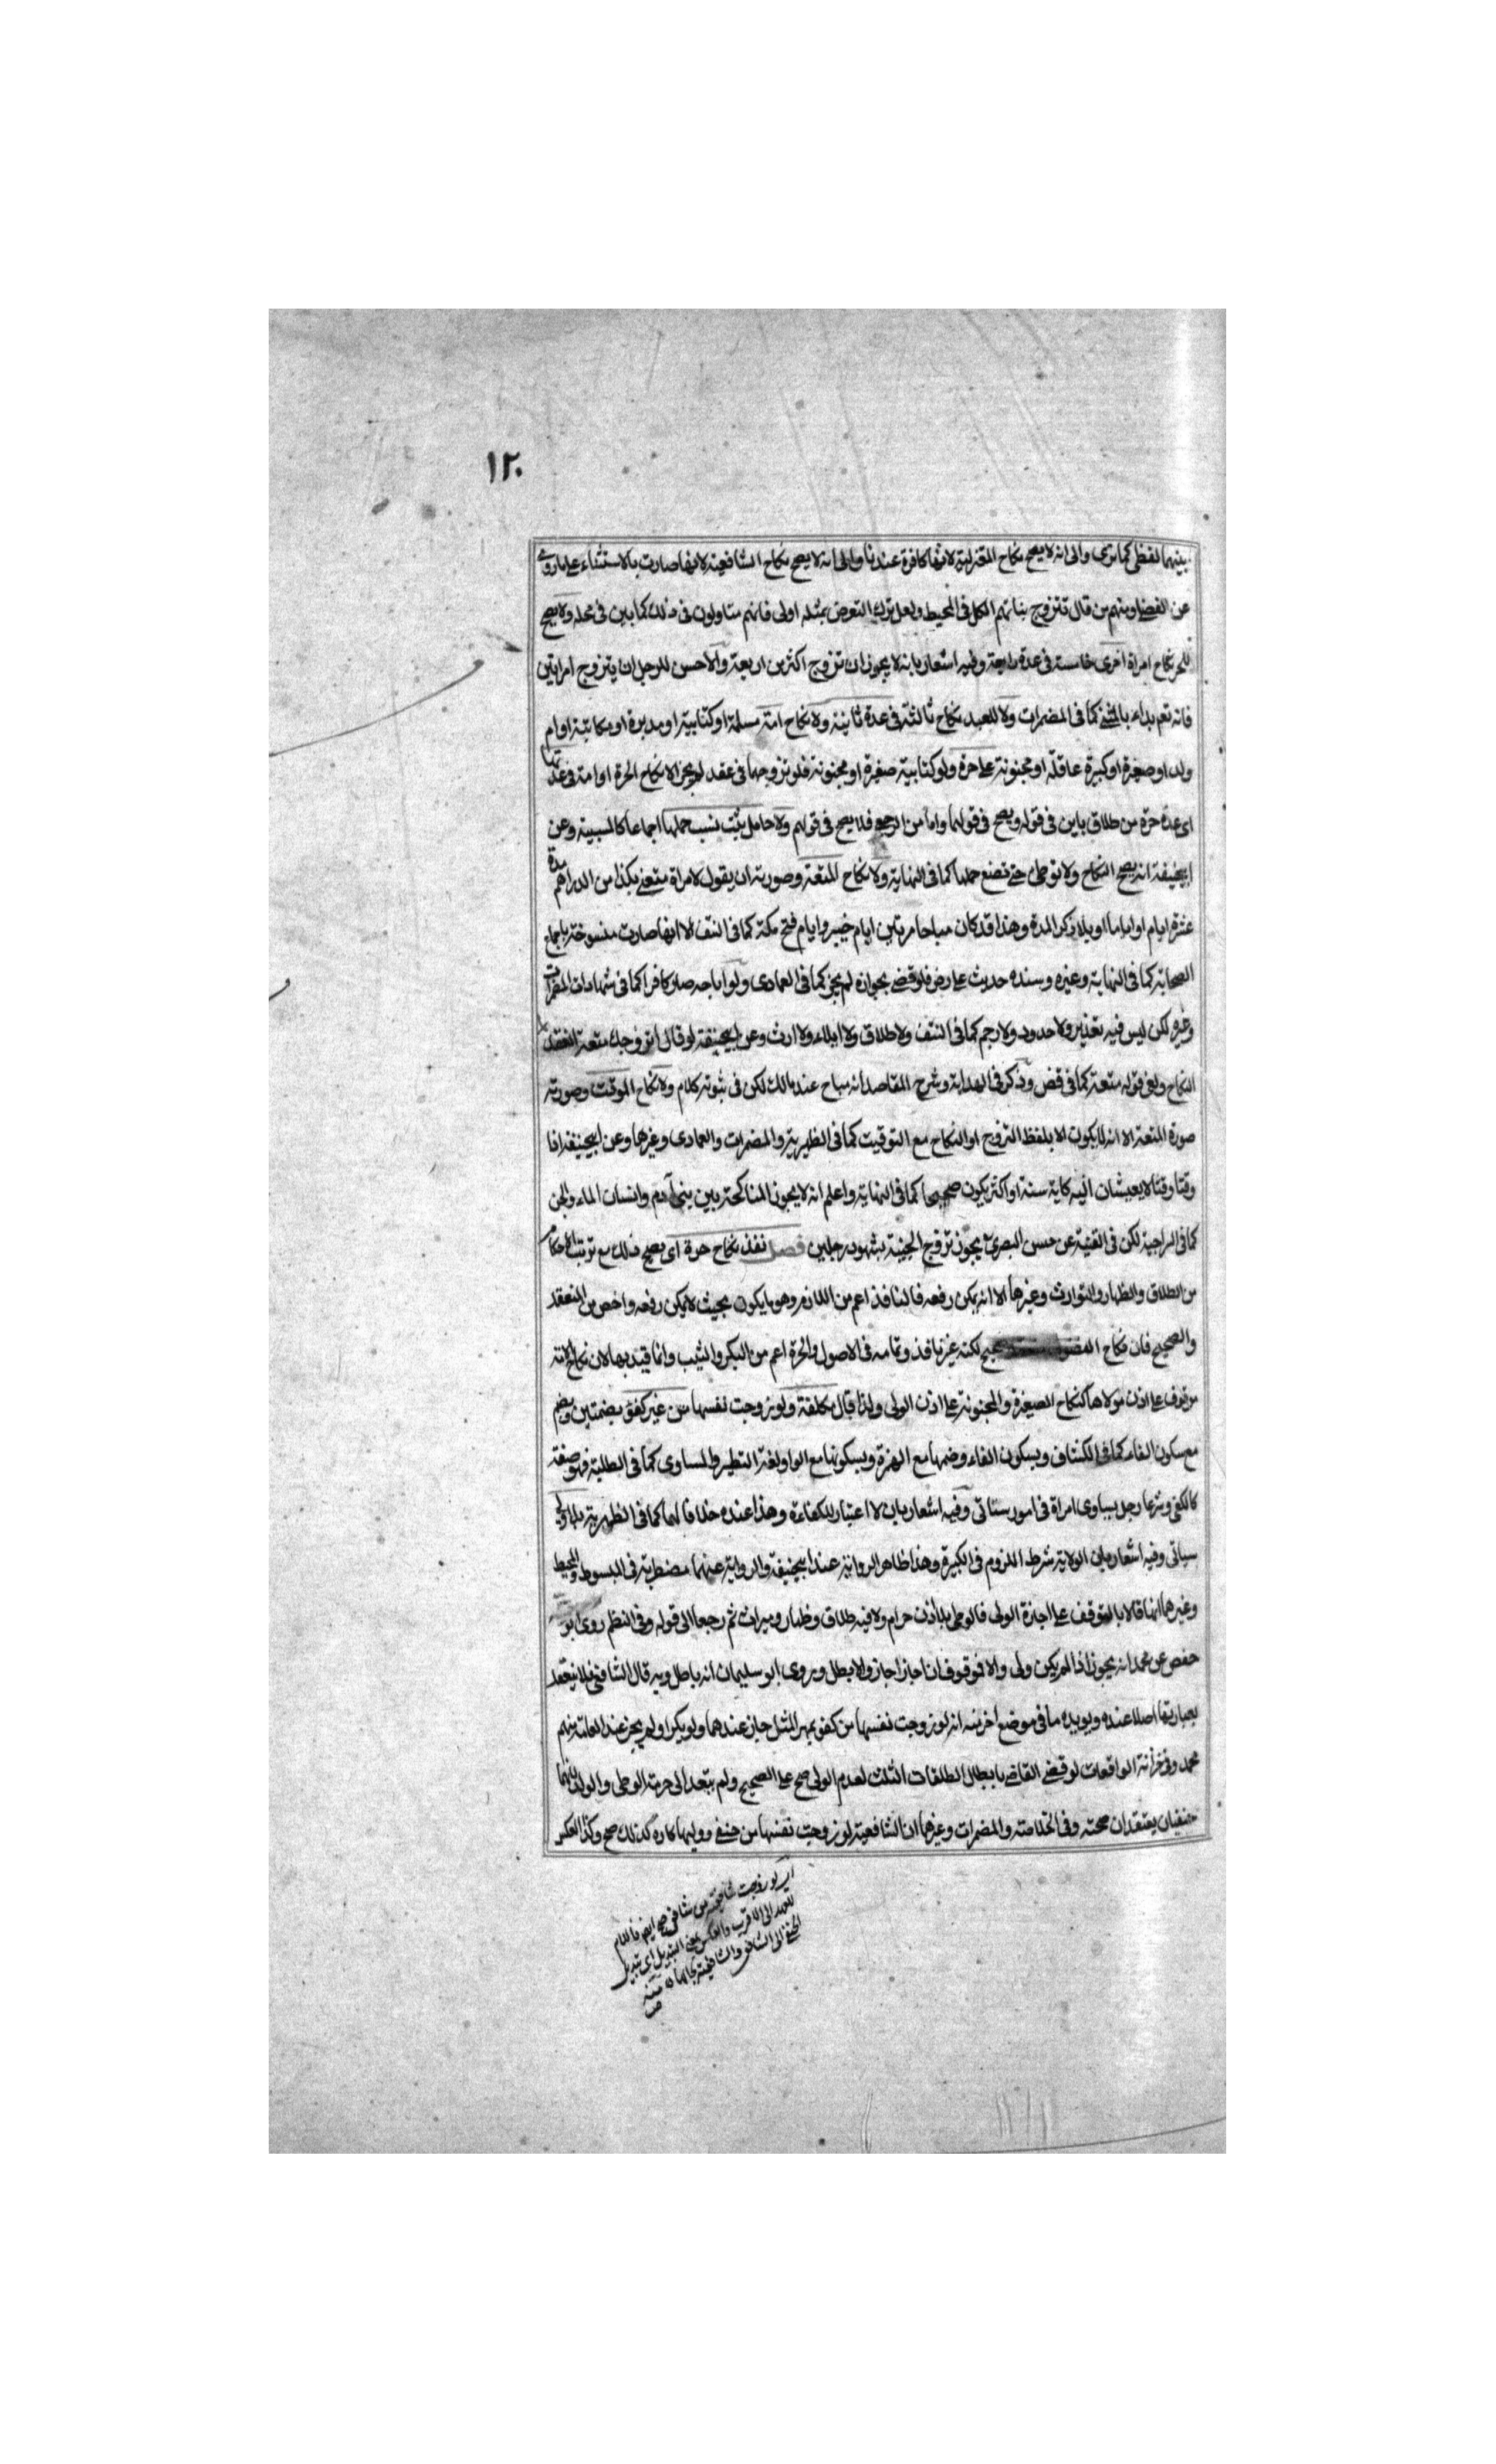 ١٢٠
بينهما لفظى كما ترى والى انه لا يصح نكاح المعتزلية لانها كافرة عندنا والى انه لا يصح نكاح الشافعية لانها صارت بالاستثناء على ما روى
عن الفضلى ومنهم من قال نتزوج بناتهم الكل فى المحيط ولعل ترك التعرض بمثله اولى فانهم متاولون فى ذلك كما بين فى محله ولا يصح
للحر نكاح امراة اخرى خامسة فى عدة رابعة وفيه اشعار بانه لا يجوز ان تزوج اكثر من اربعة والاحسن للرجل ان يتزوج امراتين
فانه تعم بداء بالمثنى كما فى المضمرات ولا للعبد نكاح ثالثة فى عدة ثانية ولا نكاح امة مسلمة او كتابية او مدبرة او مكاتبة او ام
ولد او صغيرة او كبيرة عاقلة او مجنونة على حرة ولو كتابية صغيرة او مجنونة فلو تزوجهما فى عقد لم يجز الا نكاح الحرة او امة فى عدتها
اى عدة حرة من طلاق باين فى قوله ويصح فى قولهما واما من الرجعى فلا يصح فى قولهم ولا حامل يثبت نسب حملها اجماعا كالمسبية وعن
ابيحنيفة انه يصح النكاح ولا توطئ حتى تضع حملها كما فى النهاية ولا نكاح المتعة وصورته ان يقول لامراة متعنى بكذا من الدراهم مدة
عشرة ايام او اياما او بلا ذكر المدة وهذا قد كان مباحا مرتين ايام خيبر وايام فتح مكة كما فى النتف الا انها صارت منسوخة باجماع
الصحابة كما فى النهاية وغيره وسنده حديث على رض فلو قضى بجوازه لم يجز كما فى العمادى ولو اباحه صار كافرا كما فى شهادات المضمرات
وغيره لكن ليس فيه تعذير ولا حدود ولا رجم كما فى النتف ولا طلاق ولا ايلاء ولا ارث وعن ابيحنيفة لو قال اتزوجك متعة انعقد
النكاح ولغى قوله متعة كما فى قض وذكر فى الهداية وشرح المقاصد انه مباح عند مالك لكن فى ثبوته كلام ولا نكاح الموقت وصورته
صورة المتعة الا انه لا يكون الا بلفظ التزوج او النكاح مع التوقيت كما فى الظهيرية والمضمرات والعمادى وغيرها وعن ابيحنيفة اذا
وقتا وقتا لا يعيشان اليه كماية سنة او اكثر يكون صحيحا كما فى النهاية واعلم انه لا يجوز المناكحة بين بنى آدم وانسان الماء والجن
كما فى السراجية لكن فى القنية عن حسن البصرى يجوز تزوج الجنية بشهود رجلين فصل نفذ نكاح حرة اى يصح ذلك مع ترتب الاحكام
من الطلاق والظهار والتوارث وغيرها الا انه يمكن رفعه فالنافذ اعم من اللازم وهو ما يكون بحيث لا يمكن رفعه واخص من المنعقد
والصحيح فان نكاح صحيح لكنه غير نافذ وتمامه فى الاصول والحرة اعم من البكر والثيب وانما قيد بها لان نكاح الامة
موقوف على اذن مولاها كنكاح الصغيرة والمجنونة على اذن الولى ولذا قال مكلفة ولو زوجت نفسها من غير كفؤ بضمتين وبضم
مع سكون الفاء كما فى الكشاف وبسكون الفاء وضمها مع الهمزة وبسكونها مع الواو لغة النظير والمساوى كما فى الطلبة فهو صفة
كالكفى وشرعا رجل يساوى امراة فى امور ستاتى وفيه اشعار بان لا اعتبار للكفاءة وهذا عنده خلافا لهما كما فى الظهيرية بلا ولى
سياتى وفيه اشعار بان الولاية شرط اللزوم فى الكبيرة وهذا ظاهر الرواية عند ابيحنيفة والرواية عنهما مضطربة فى المبسوط والمحيط
وغيرهما انهما قالا بالتوقف على اجازة الولى فالوطى بلا اذن حرام ولا فيه طلاق وظهار وميراث ثم رجعا الى قوله وفى النظم روى ابو
حفص عن محمد انه يجوز اذا لم يكن ولى والا فوقوف ان اجاز اجاز والا بطل وروى ابو سليمان انه باطل وبه قال الشافعى فلا ينعقد
بعبارتها اصلا عنده ويويده ما فى موضع اخر منه انه لو زوجت نفسها من كفو بمهر المثل جاز عندهما ولو بكرا ولم يجز عند العامة منهم
محمد وفى خزانة الواقعات لو قضى القاضى بابطال الطلقات الثلث لعدم الولى صح على الصحيح ولم يتعد الى حرمة الوطى والولد لانهما
حنفيان يعتقدان صحته وفى الخلاصة والمضمرات وغيرهما ان الشافعية لو زوجت نفسها من حنفى ووليها كاره كذلك صح وكذا العكس
اى لو زوجت شافعية من شافعى صح ايضا فاللام
للعهد الى الاقرب والعكس بمعنى التبديل اى تبديل
الحنفى الى الشافعى والشافعية بحالها
منه